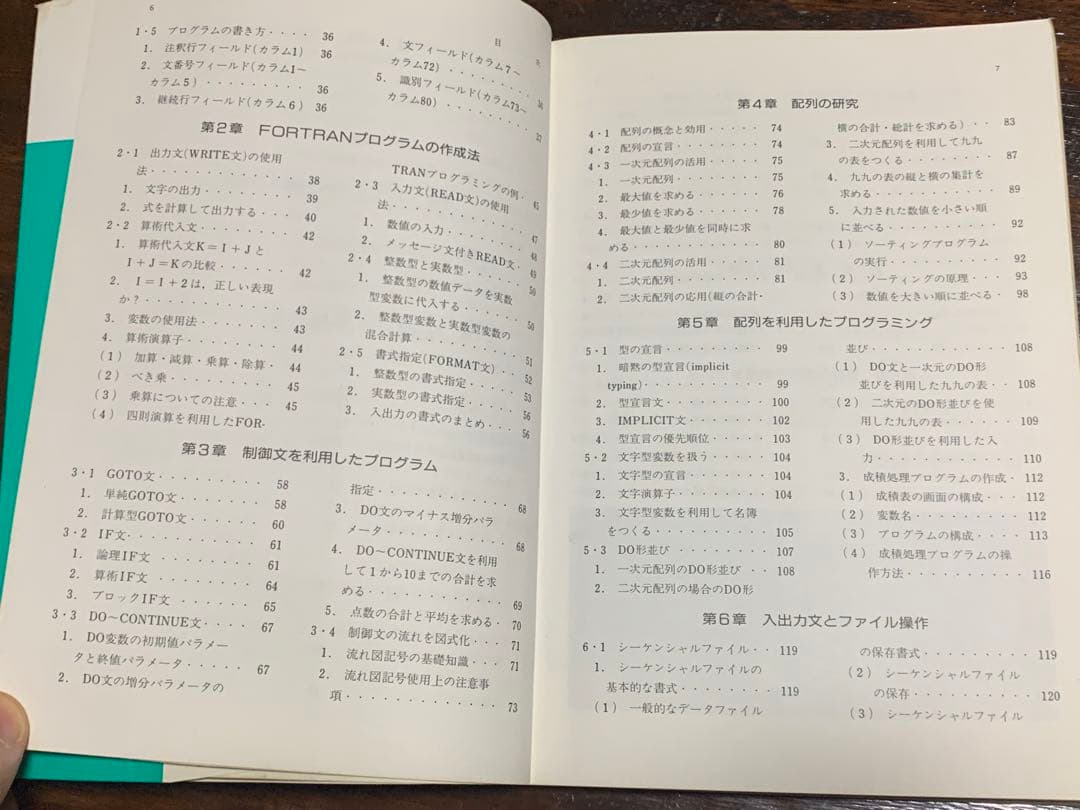 6
目
1・5 プログラムの書き方・・・・ 36
1. 注釈行フィールド(カラム1) 36
2. 文番号フィールド(カラム1～
カラム5)・・・・・・・・・ 36
3. 継続行フィールド(カラム6) 36
4. 文フィールド(カラム7～
カラム72)・・・・・・・・・ 36
5. 識別フィールド(カラム73～
カラム80)・・・・・・・・・ 37
第2章 FORTRANプログラムの作成法
2・1 出力文(WRITE文)の使用
法・・・・・・・・・・・・ 38
1. 文字の出力・・・・・・・ 39
2. 式を計算して出力する・・・ 40
2・2 算術代入文・・・・・・・・ 42
1. 算術代入文K＝I＋Jと
I＋J＝Kの比較・・・・・・ 42
2. I＝I＋2は，正しい表現
か？・・・・・・・・・・・ 43
3. 変数の使用法・・・・・・ 43
4. 算術演算子・・・・・・・ 44
(1) 加算・減算・乗算・除算・ 44
(2) べき乗・・・・・・・・ 45
(3) 乗算についての注意・・ 45
(4) 四則演算を利用したFOR-
TRANプログラミングの例・ 45
2・3 入力文(READ文)の使用
法・・・・・・・・・・・・ 47
1. 数値の入力・・・・・・・ 48
2. メッセージ文付きREAD文・ 49
2・4 整数型と実数型・・・・・・ 50
1. 整数型の数値データを実数
型変数に代入する・・・・・ 50
2. 整数型変数と実数型変数の
混合計算・・・・・・・・・ 51
2・5 書式指定(FORMAT文)・・ 52
1. 整数型の書式指定・・・・ 53
2. 実数型の書式指定・・・・ 56
3. 入出力の書式のまとめ・・・ 56
第3章 制御文を利用したプログラム
3・1 GOTO文・・・・・・・・・ 58
1. 単純GOTO文・・・・・・・ 58
2. 計算型GOTO文・・・・・・ 60
3・2 IF文・・・・・・・・・・ 61
1. 論理IF文・・・・・・・・ 61
2. 算術IF文・・・・・・・・ 64
3. ブロックIF文・・・・・・ 65
3・3 DO～CONTINUE文・・・・ 67
1. DO変数の初期値パラメー
タと終値パラメータ・・・・・ 67
2. DO文の増分パラメータの
指定・・・・・・・・・・・ 68
3. DO文のマイナス増分パラ
メータ・・・・・・・・・・ 68
4. DO～CONTINUE文を利用
して1から10までの合計を求
める・・・・・・・・・・・ 69
5. 点数の合計と平均を求める・ 70
3・4 制御文の流れを図式化・・・ 71
1. 流れ図記号の基礎知識・・・ 71
2. 流れ図記号使用上の注意事
項・・・・・・・・・・・・ 73
7
第4章 配列の研究
4・1 配列の概念と効用・・・・・ 74
4・2 配列の宣言・・・・・・・・ 74
4・3 一次元配列の活用・・・・・ 75
1. 一次元配列・・・・・・・ 75
2. 最大値を求める・・・・・ 76
3. 最少値を求める・・・・・ 78
4. 最大値と最少値を同時に求
める・・・・・・・・・・・ 80
4・4 二次元配列の活用・・・・・ 81
1. 二次元配列・・・・・・・ 81
2. 二次元配列の応用(縦の合計・
横の合計・総計を求める)・・ 83
3. 二次元配列を利用して九九
の表をつくる・・・・・・・ 87
4. 九九の表の縦と横の集計を
求める・・・・・・・・・・ 89
5. 入力された数値を小さい順
に並べる・・・・・・・・・ 92
(1) ソーティングプログラム
の実行・・・・・・・・・ 92
(2) ソーティングの原理・・・ 93
(3) 数値を大きい順に並べる・ 98
第5章 配列を利用したプログラミング
5・1 型の宣言・・・・・・・・・ 99
1. 暗黙の型宣言(implicit
typing)・・・・・・・・・ 99
2. 型宣言文・・・・・・・・ 100
3. IMPLICIT文・・・・・・・ 102
4. 型宣言の優先順位・・・・ 103
5・2 文字型変数を扱う・・・・・ 104
1. 文字型の宣言・・・・・・ 104
2. 文字演算子・・・・・・・ 104
3. 文字型変数を利用して名簿
をつくる・・・・・・・・・ 105
5・3 DO形並び・・・・・・・・ 107
1. 一次元配列のDO形並び・・ 108
2. 二次元配列の場合のDO形
並び・・・・・・・・・・・ 108
(1) DO文と一次元のDO形
並びを利用した九九の表・・ 108
(2) 二次元のDO形並びを使
用した九九の表・・・・・・ 109
(3) DO形並びを利用した入
力・・・・・・・・・・・ 110
3. 成績処理プログラムの作成・ 112
(1) 成績表の画面の構成・・・ 112
(2) 変数名・・・・・・・・ 112
(3) プログラムの構成・・・・ 113
(4) 成績処理プログラムの操
作方法・・・・・・・・・・ 116
第6章 入出力文とファイル操作
6・1 シーケンシャルファイル・・ 119
1. シーケンシャルファイルの
基本的な書式・・・・・・・ 119
(1) 一般的なデータファイル
の保存書式・・・・・・・・ 119
(2) シーケンシャルファイル
の保存・・・・・・・・・・ 120
(3) シーケンシャルファイル